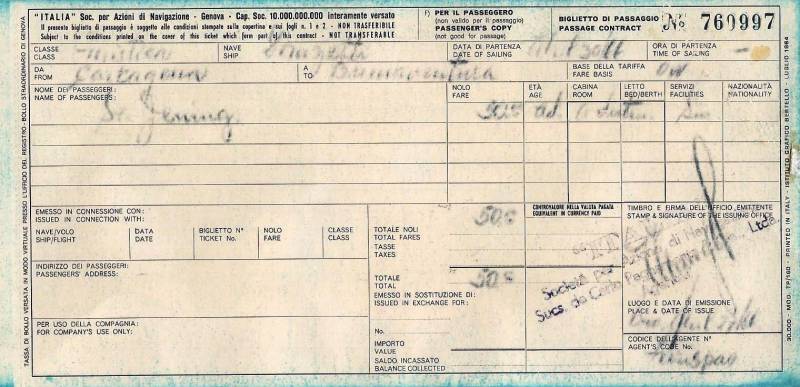 "ITALIA" Soc. per Azioni di Navigazione - Genova - Cap. Soc. 10.000.000.000 interamente versato
Il presente biglietto di passaggio è soggetto alle condizioni stampate sulla copertina e sui fogli n. 1 e 2 - NON TRASFERIBILE
Subject to the conditions printed on the cover of this ticket which form part of this contract - NOT TRANSFERABLE
F) PER IL PASSEGGERO
(non valido per il passaggio)
PASSENGER'S COPY
(not good for passage)
BIGLIETTO DI PASSAGGIO
PASSAGE CONTRACT
No 760997
CLASSE
CLASS
NAVE
SHIP
Donizetti
DATA DI PARTENZA
DATE OF SAILING
ORA DI PARTENZA
TIME OF SAILING
DA
FROM
Cartagena
A
TO
Buenaventura
BASE DELLA TARIFFA
FARE BASIS
OW
NOME DEI PASSEGGERI:
NAMES OF PASSENGERS:
NOLO
FARE
ETÀ
AGE
CABINA
ROOM
LETTO
BED/BERTH
SERVIZI
FACILITIES
NAZIONALITÀ
NATIONALITY
EMESSO IN CONNESSIONE CON:
ISSUED IN CONNECTION WITH:
NAVE/VOLO
SHIP/FLIGHT
DATA
DATE
BIGLIETTO N°
TICKET No.
NOLO
FARE
CLASSE
CLASS
TOTALE NOLI
TOTAL FARES
TASSE
TAXES
TOTALE
TOTAL
CONTROVALORE NELLA VALUTA PAGATA
EQUIVALENT IN CURRENCY PAID
TIMBRO E FIRMA DELL'UFFICIO EMITTENTE
STAMP & SIGNATURE OF THE ISSUING OFFICE
INDIRIZZO DEI PASSEGGERI:
PASSENGERS' ADDRESS:
EMESSO IN SOSTITUZIONE DI:
ISSUED IN EXCHANGE FOR:
Società per Azioni di Navigazione
Sucs. de Carlo Ltda.
LUOGO E DATA DI EMISSIONE
PLACE & DATE OF ISSUE
PER USO DELLA COMPAGNIA:
FOR COMPANY'S USE ONLY:
No.
IMPORTO
VALUE
SALDO. INCASSATO
BALANCE COLLECTED
CODICE DELL'AGENTE N°
AGENT'S CODE No.
TASSA DI BOLLO VERSATA IN MODO VIRTUALE PRESSO L'UFFICIO DEL REGISTRO - BOLLO STRAORDINARIO DI GENOVA
30.000 - MOD. TP/160 - PRINTED IN ITALY - ISTITUTO GRAFICO BERTELLO - LUGLIO 1964